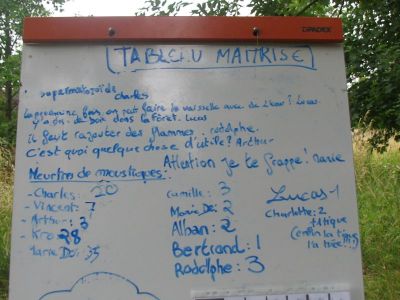 DIPADEX
TABLEAU MAITRISE
charles
La première fois on fait faire la vaisselle avec de l'eau? Lucas
y a de dans la forêt. Lucas
il faut rajouter des flammes. rodolphe.
c'est quoi quelque chose d'utile? Arthur
Attention je te frappe! marie
Meurtres de moustiques:
- Charles: 20
- Vincent: 7
- Arthur: 3
- Kro 28
- Marie Do: 35
camille: 3
Marie De: 2
Alban: 2
Bertrand: 1
Rodolphe: 3
Lucas-1
Charlotte: 2
+ 1 tique